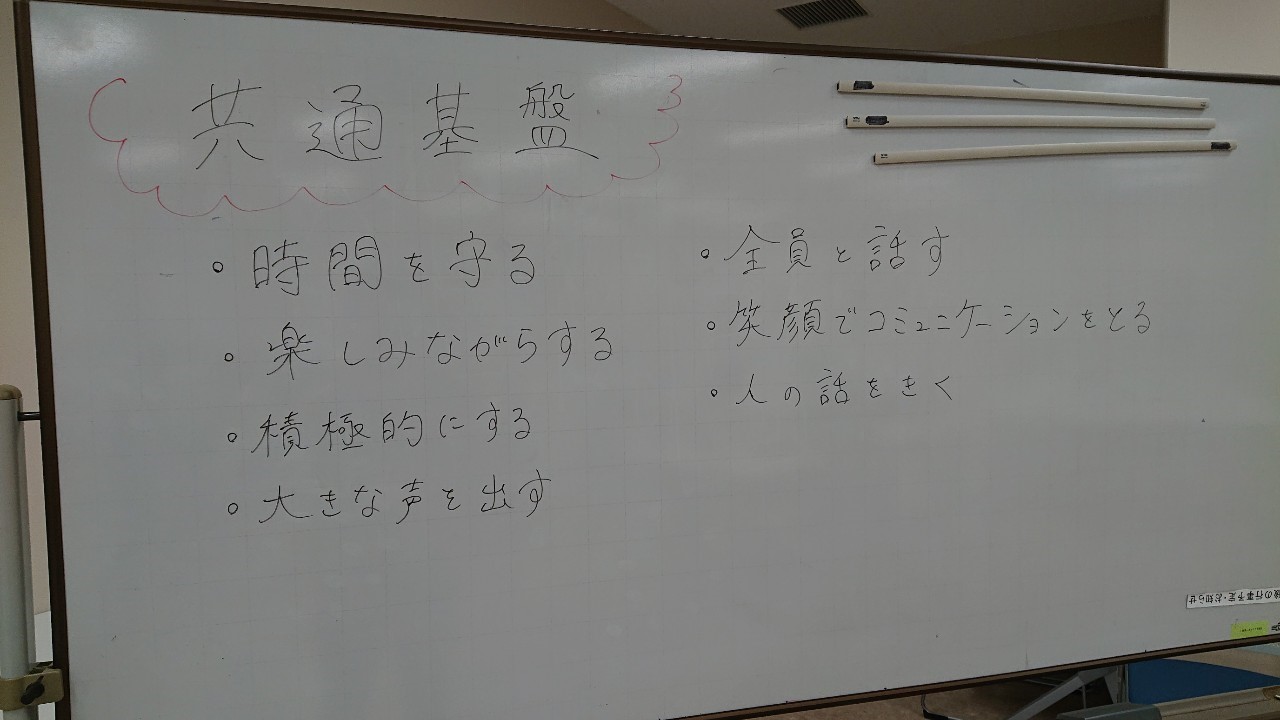 共通基盤
・時間を守る
・楽しみながらする
・積極的にする
・大きな声を出す
・全員と話す
・笑顔でコミュニケーションをとる
・人の話をきく
の行事予定・お知らせ